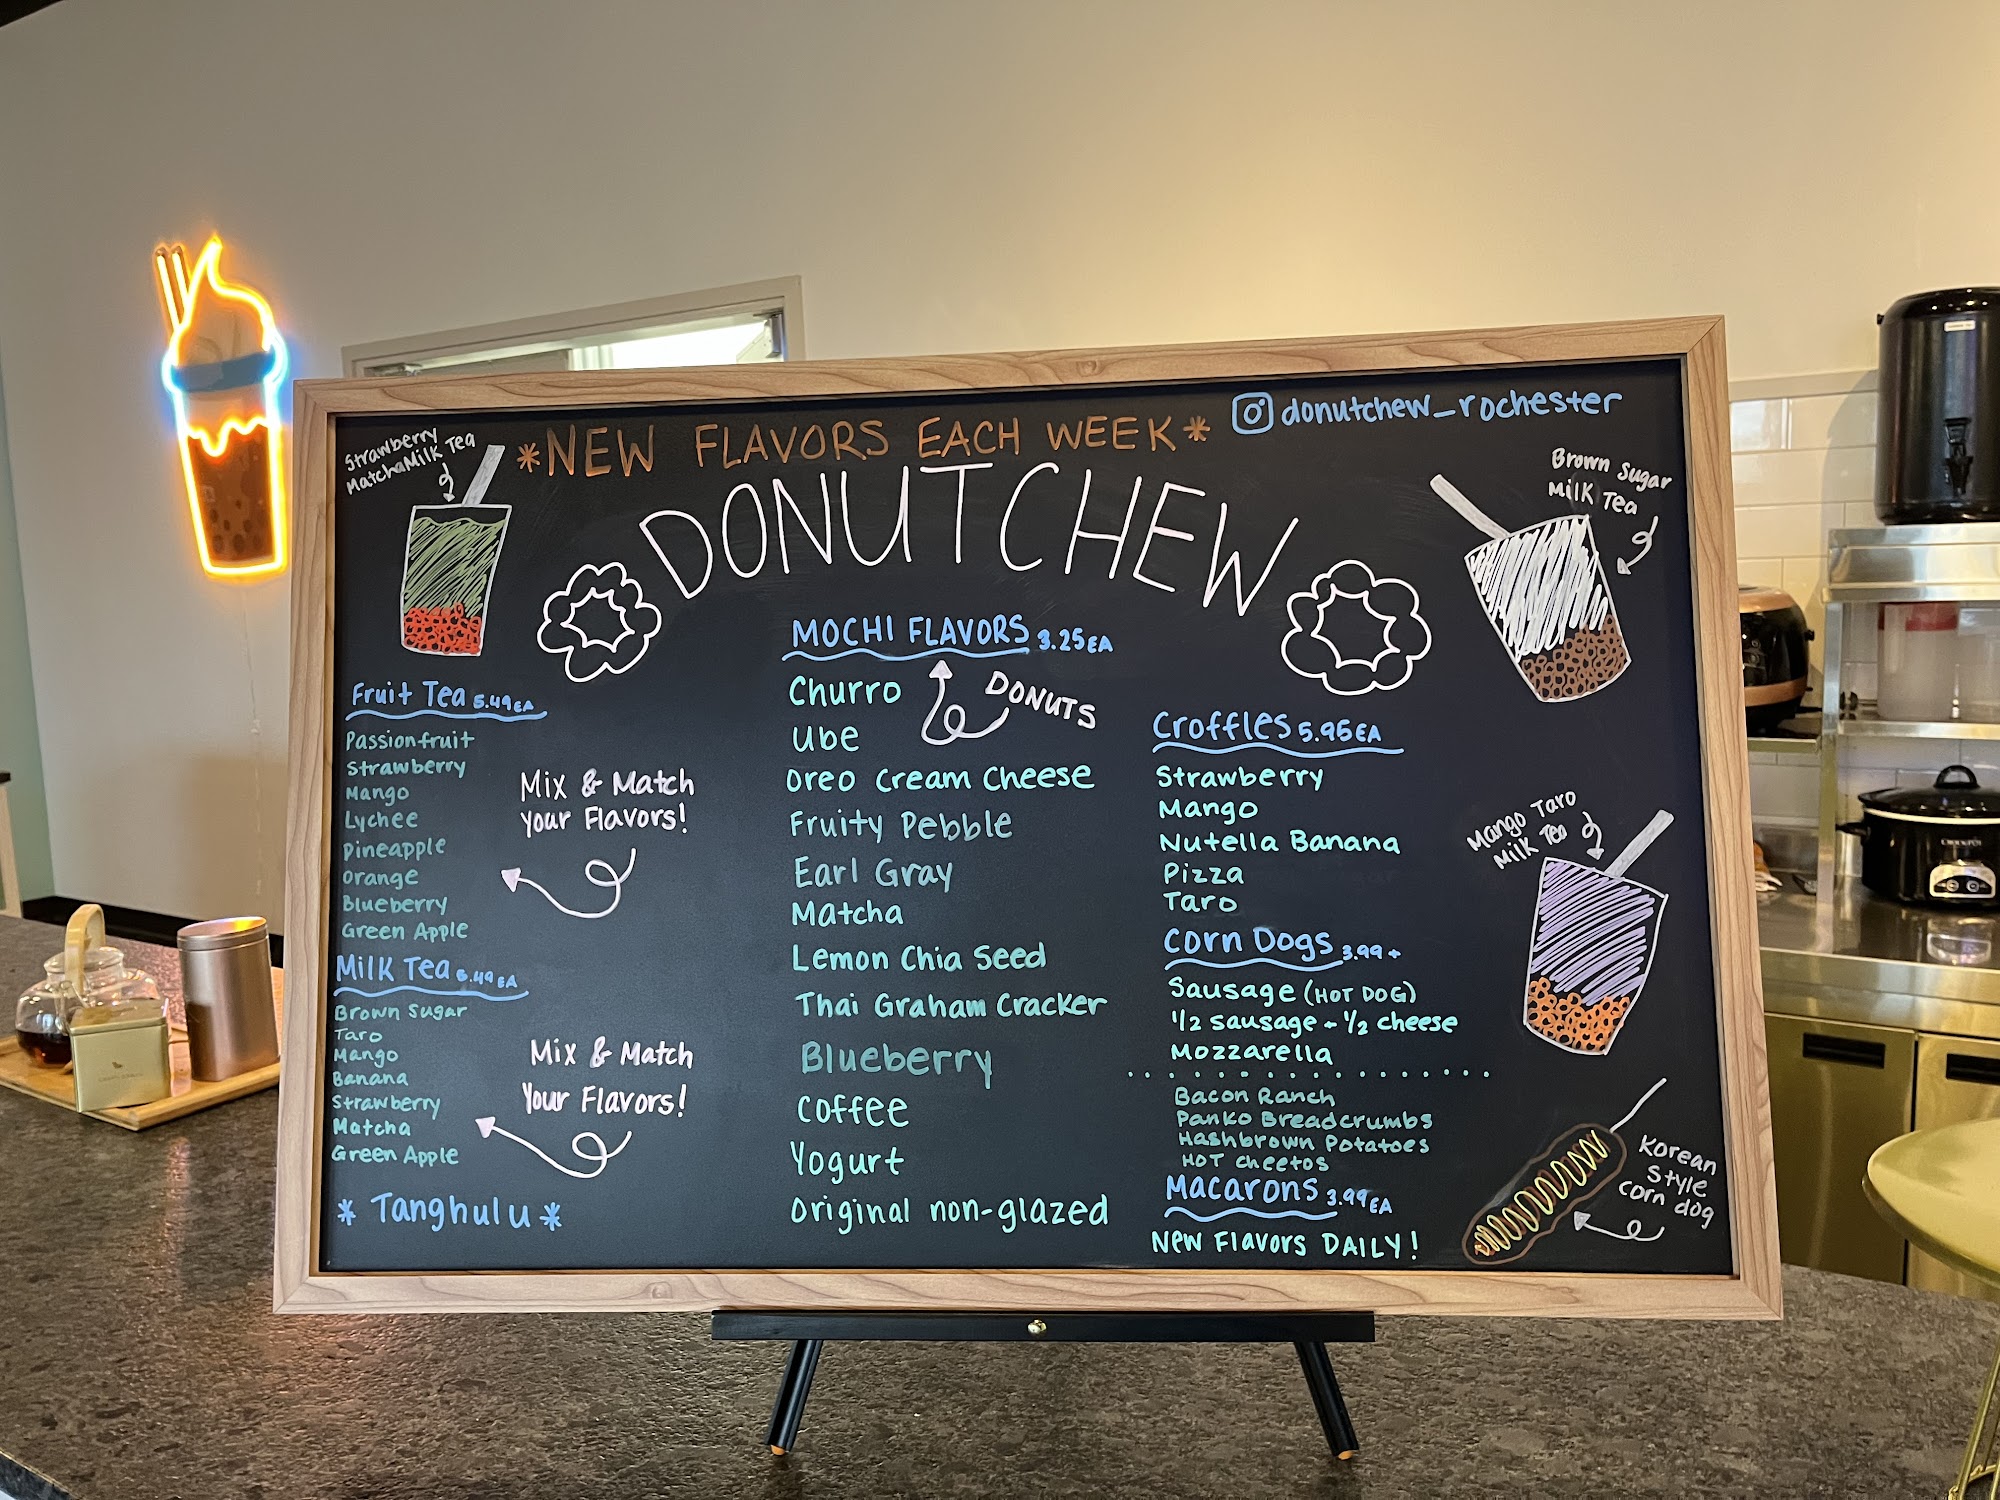 *NEW FLAVORS EACH WEEK*
donutchew_rochester
DONUTCHEW
Strawberry
Matcha Milk Tea
Brown Sugar
Milk Tea
MOCHI FLAVORS 3.25EA
DONUTS
Churro
Ube
Oreo Cream Cheese
Fruity Pebble
Earl Gray
Matcha
Lemon Chia Seed
Thai Graham Cracker
Blueberry
Coffee
Yogurt
Original non-glazed
Fruit Tea 5.49EA
Passionfruit
Strawberry
Mango
Lychee
Pineapple
Orange
Blueberry
Green Apple
Mix & Match
your Flavors!
Milk Tea 5.49EA
Brown Sugar
Taro
Mango
Banana
Strawberry
Matcha
Green Apple
Mix & Match
Your Flavors!
* Tanghulu *
Croffles 5.95EA
Strawberry
Mango
Nutella Banana
Pizza
Taro
Corn Dogs 3.99+
Sausage (HOT DOG)
1/2 sausage - 1/2 cheese
Mozzarella
Bacon Ranch
Panko Breadcrumbs
Hashbrown Potatoes
HOT Cheetos
Macarons 3.99EA
New Flavors DAILY!
Mango Taro
Milk Tea
Korean
Style
corn dog
CROCKPOT